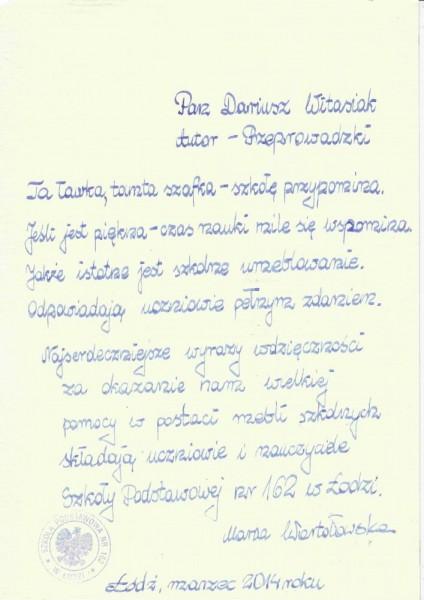 Pan Dariusz Witasiak
Autor – Przeprowadzki
Ta ławka, tamta szafka – szkołę przypomina.
Jeśli jest piękna – czas nauki mile się wspomina.
Jakże istotne jest szkolne umeblowanie.
Odpowiadają uczniowie pełnym zdaniem.
Najserdeczniejsze wyrazy wdzięczności
za okazanie nam wielkiej
pomocy w postaci mebli szkolnych
składają uczniowie i nauczyciele
Szkoły Podstawowej nr 162 w Łodzi.
SZKOŁA PODSTAWOWA NR 162
W ŁODZI
Łódź, marzec 2014 roku